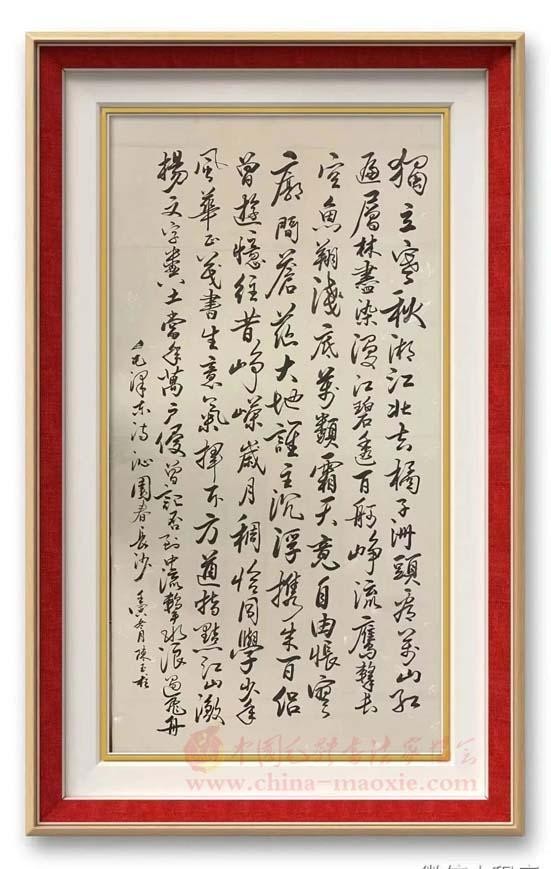 獨立寒秋湘江北去橘子洲頭看萬山紅
遍層林盡染漫江碧透百舸崢流鷹擊長
空魚翔淺底萬類霜天競自由悵寥
廓問蒼茫大地誰主沉浮携來百侣
曾遊憶往昔崢嶸歲月稠恰同學少年
風華正茂書生意氣揮斥方遒指點江山激
揚文字糞土當年萬户侯曾記否到中流擊水浪遏飛舟
毛澤東詩沁園春長沙 月陳玉
中国毛体书法家协会
www.china-maoxie.com